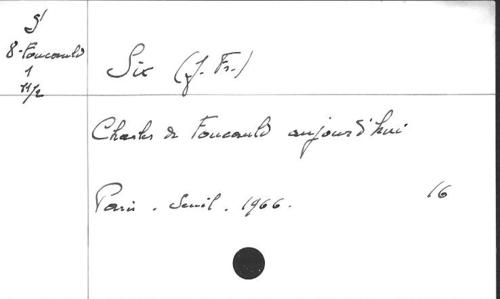 8-Foucauld
1
11/2
Six (J. Fr.)
Charles de Foucauld aujourd'hui
Paris. Seuil. 1966. 16